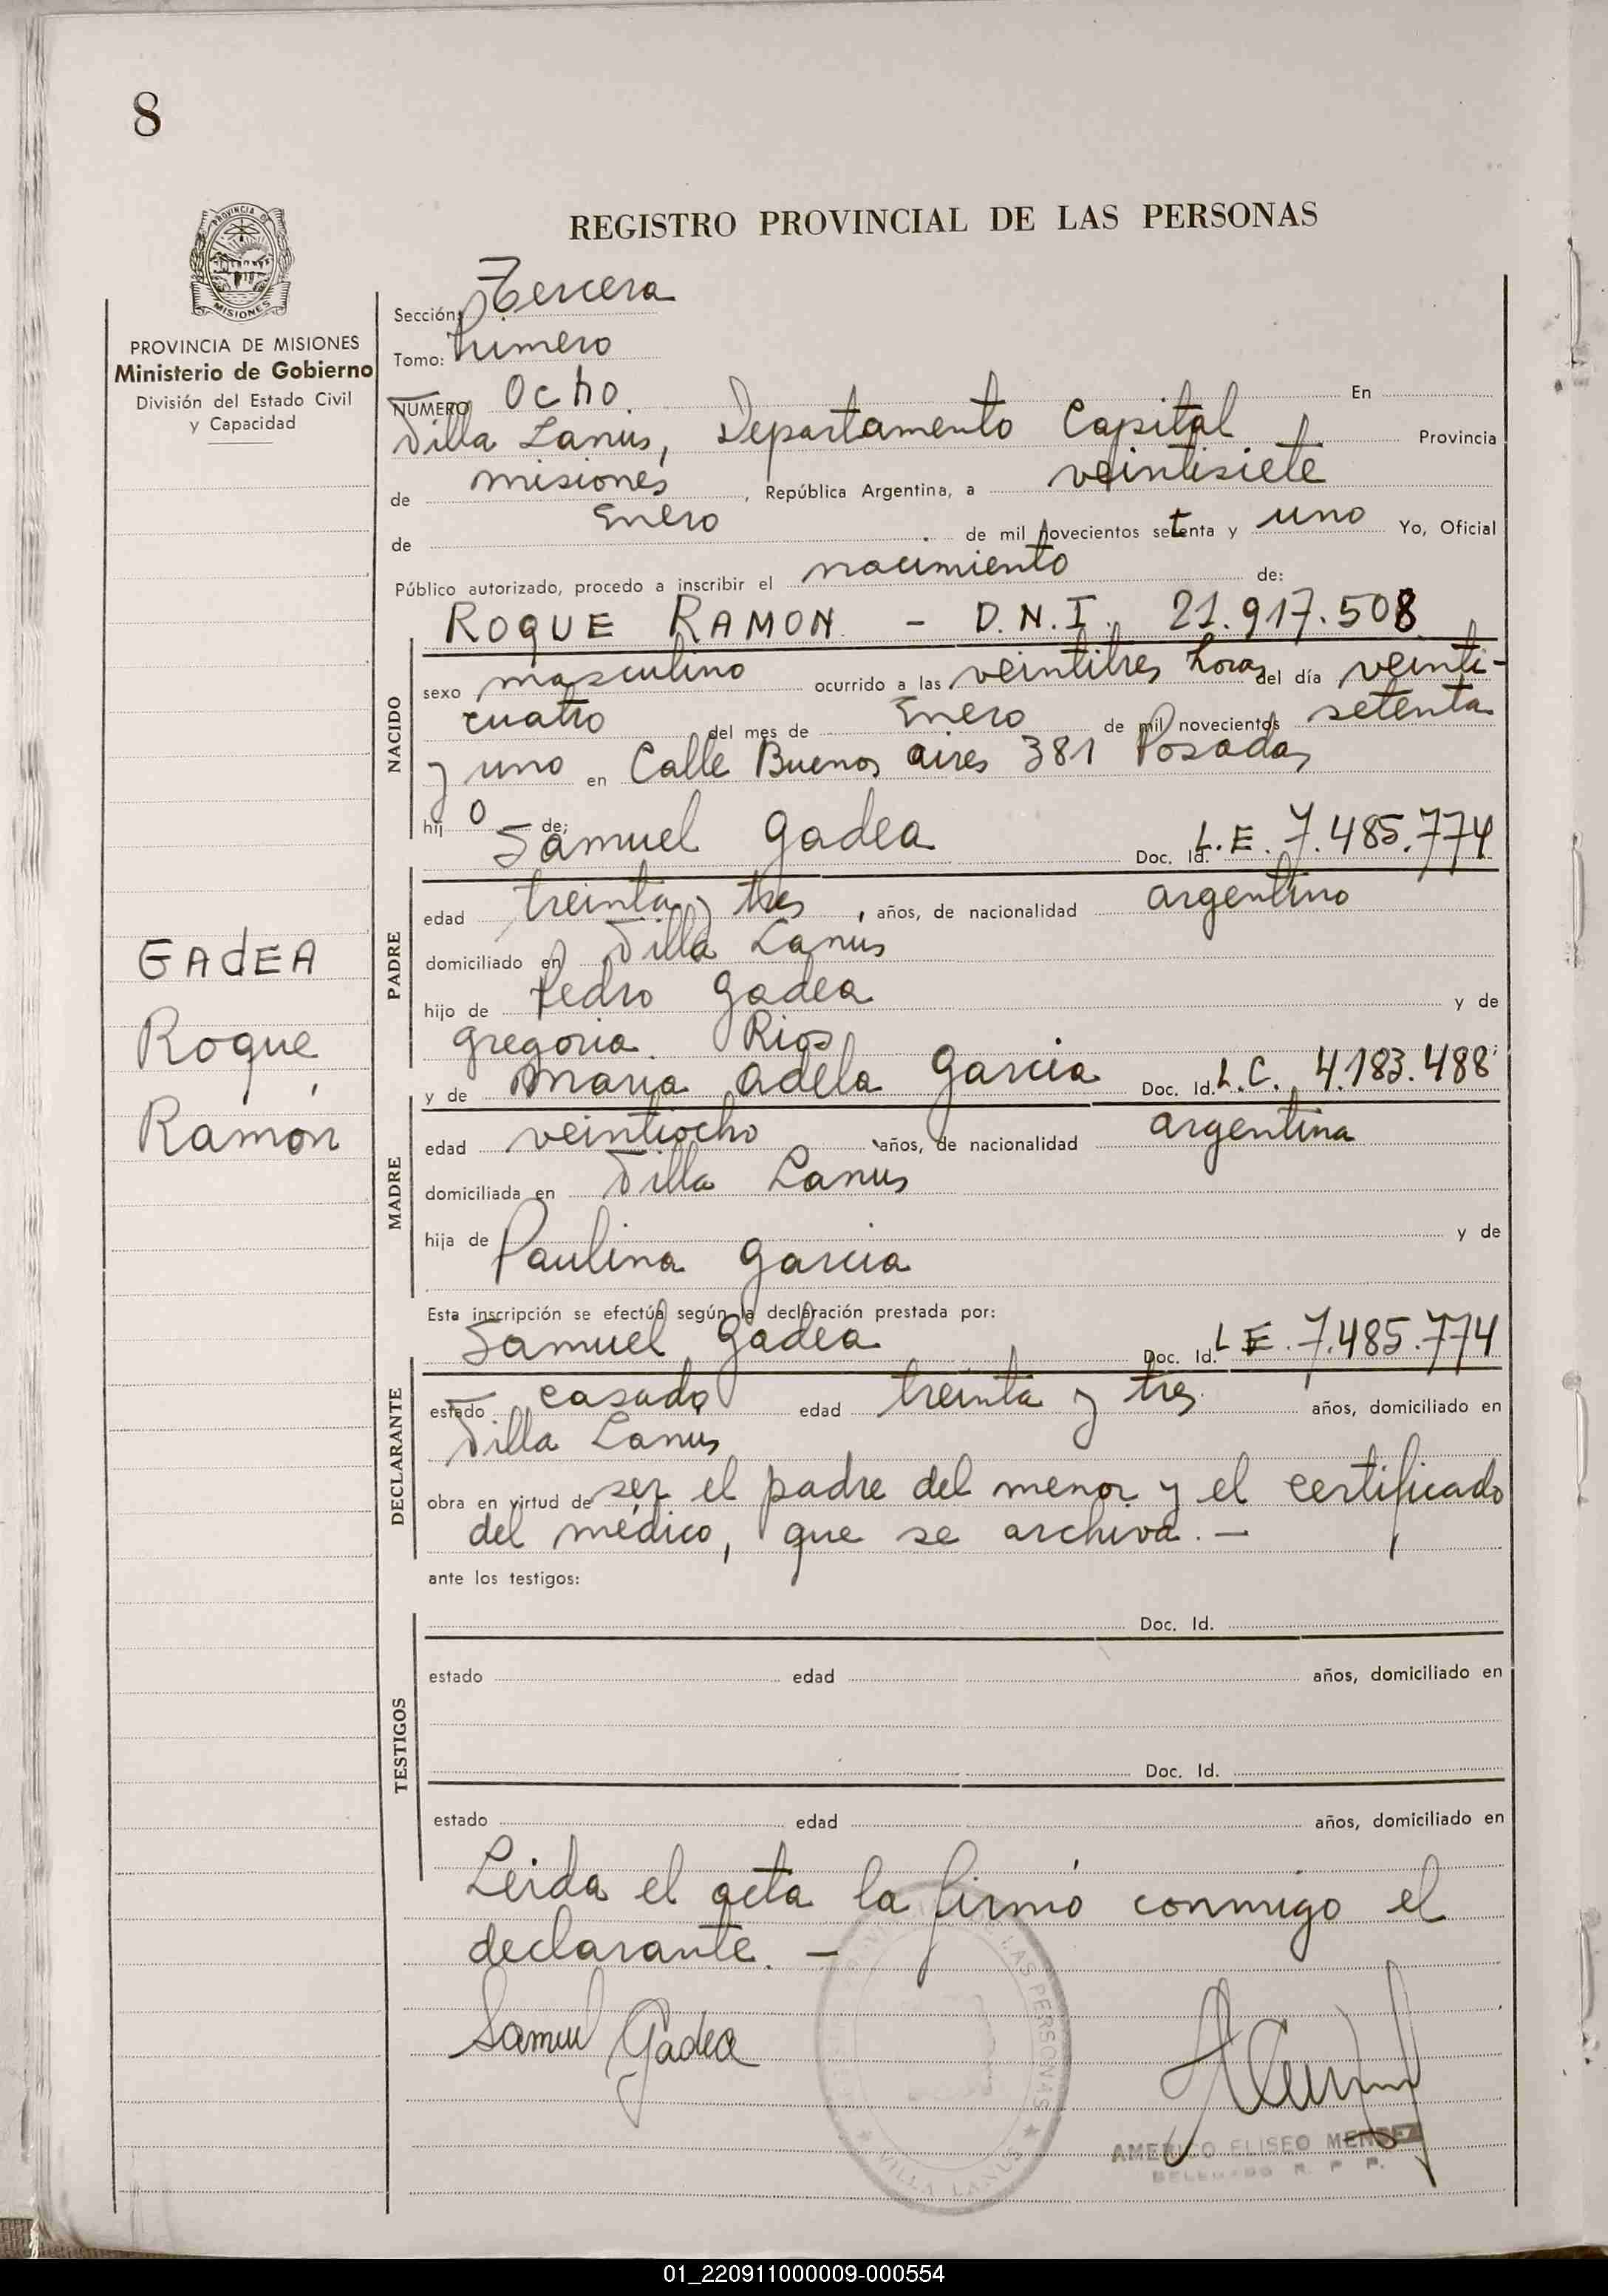 8
REGISTRO PROVINCIAL DE LAS PERSONAS
PROVINCIA DE MISIONES
MISIONES
PROVINCIA DE MISIONES
Ministerio de Gobierno
División del Estado Civil
y Capacidad
Sección: Tercera
Tomo: Primero
NUMERO Ocho. En
Villa Lanus, Departamento Capital, Provincia
de misiones, República Argentina, a veintisiete
de Enero de mil novecientos setenta y uno Yo, Oficial
Público autorizado, procedo a inscribir el nacimiento de:
ROQUE RAMON. - D.N.I. 21.917.508
NACIDO
sexo masculino ocurrido a las veintitres horas del día veinti-
cuatro del mes de Enero de mil novecientos setenta
y uno en Calle Buenos aires 381 Posadas
hijo de:
Samuel Gadea Doc. Id. L.E. 7.485.774
PADRE
edad treinta y tres, años, de nacionalidad argentino
domiciliado en Villa Lanus
hijo de Pedro Gadea y de
Gregoria Rios
y de Maria Adela Garcia Doc. Id. L.C. 4.183.488
MADRE
edad veintiocho años, de nacionalidad argentina
domiciliada en Villa Lanus
hija de Paulina Garcia y de
GAdEA
Roque
Ramón
Esta inscripción se efectúa según la declaración prestada por:
Samuel Gadea Doc. Id. L E. 7.485.774
DECLARANTE
estado casado edad treinta y tres años, domiciliado en
Villa Lanus
obra en virtud de ser el padre del menor y el certificado
del médico, que se archiva. —
ante los testigos:
Doc. Id.
TESTIGOS
estado edad años, domiciliado en
Doc. Id.
estado edad años, domiciliado en
Leida el acta la firmó conmigo el
declarante. —
Samuel Gadea
LAS PERSONAS
VILLA LANUS
AMERICO ELISEO MENDEZ
DELEGADO R. P. P.
01_220911000009-000554